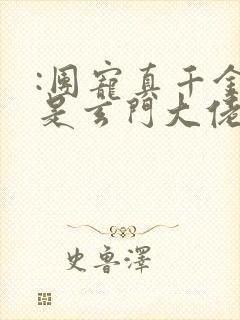 :團寵真千金
是玄門大佬
史魯澤